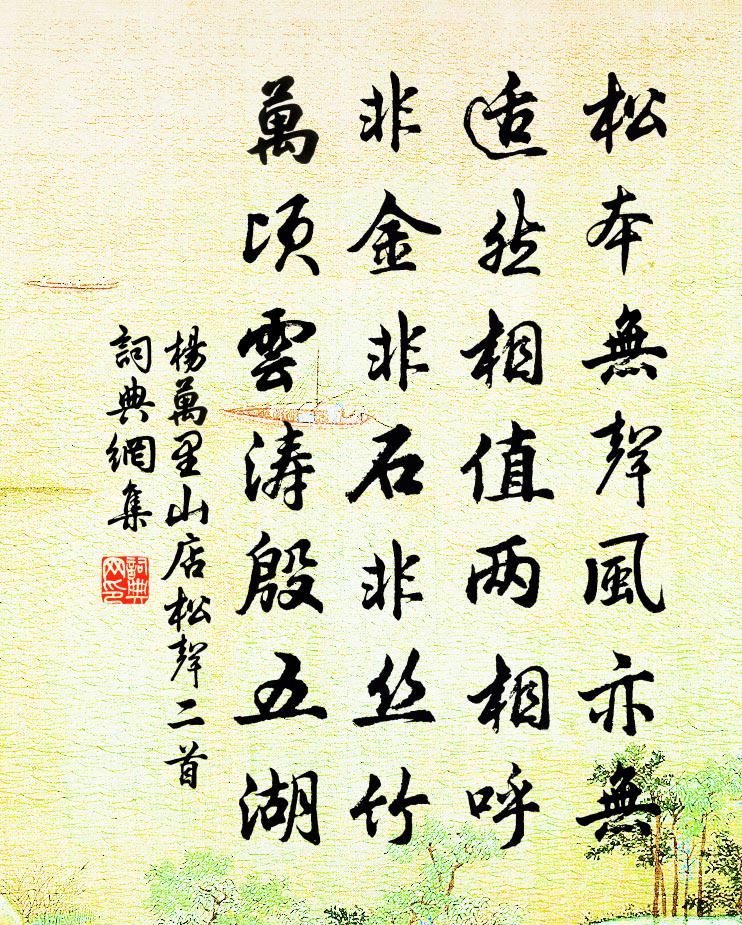 松本無聲風亦無
适然相值两相呼
非金非石非丝竹
萬頃雲涛殷五湖
楊萬里山店松聲二首
詞典網集
詞典网印